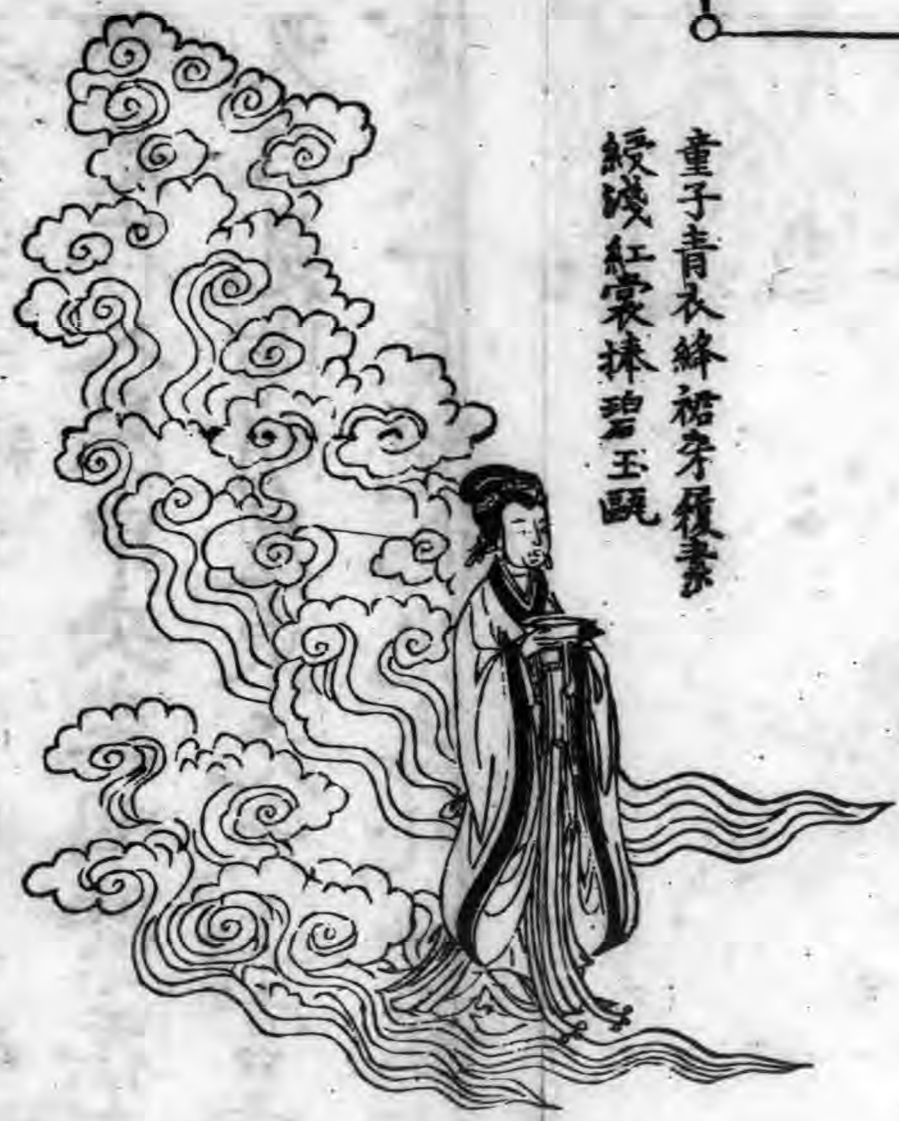 童子青衣絳裙朱履素
綬淺紅裳捧碧玉甌